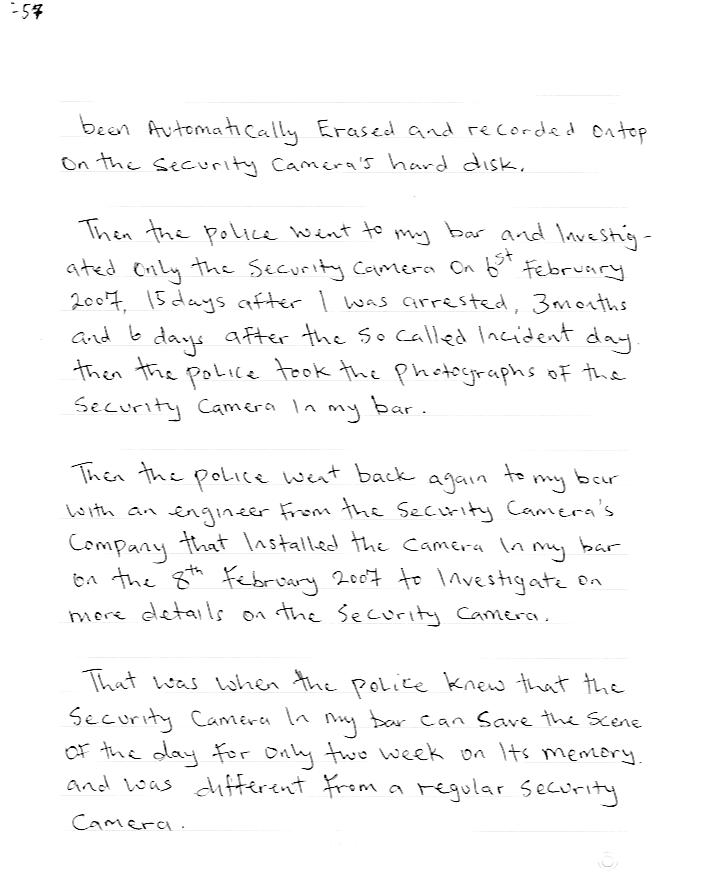 -57
been Automatically Erased and recorded ontop
On the Security Camera's hard disk.
Then the police went to my bar and Investig-
ated Only the Security Camera On 6st February
2007, 15 days after I was arrested, 3 months
and 6 days after the So called Incident day.
then the police took the Photographs of the
Security Camera In my bar.
Then the police went back again to my bar
with an engineer from the Security Camera's
Company that Installed the Camera In my bar
on the 8th February 2007 to Investigate on
more details on the Security Camera.
That was when the police knew that the
Security Camera In my bar can Save the Scene
of the day for only two week on Its memory.
and was different from a regular Security
Camera.